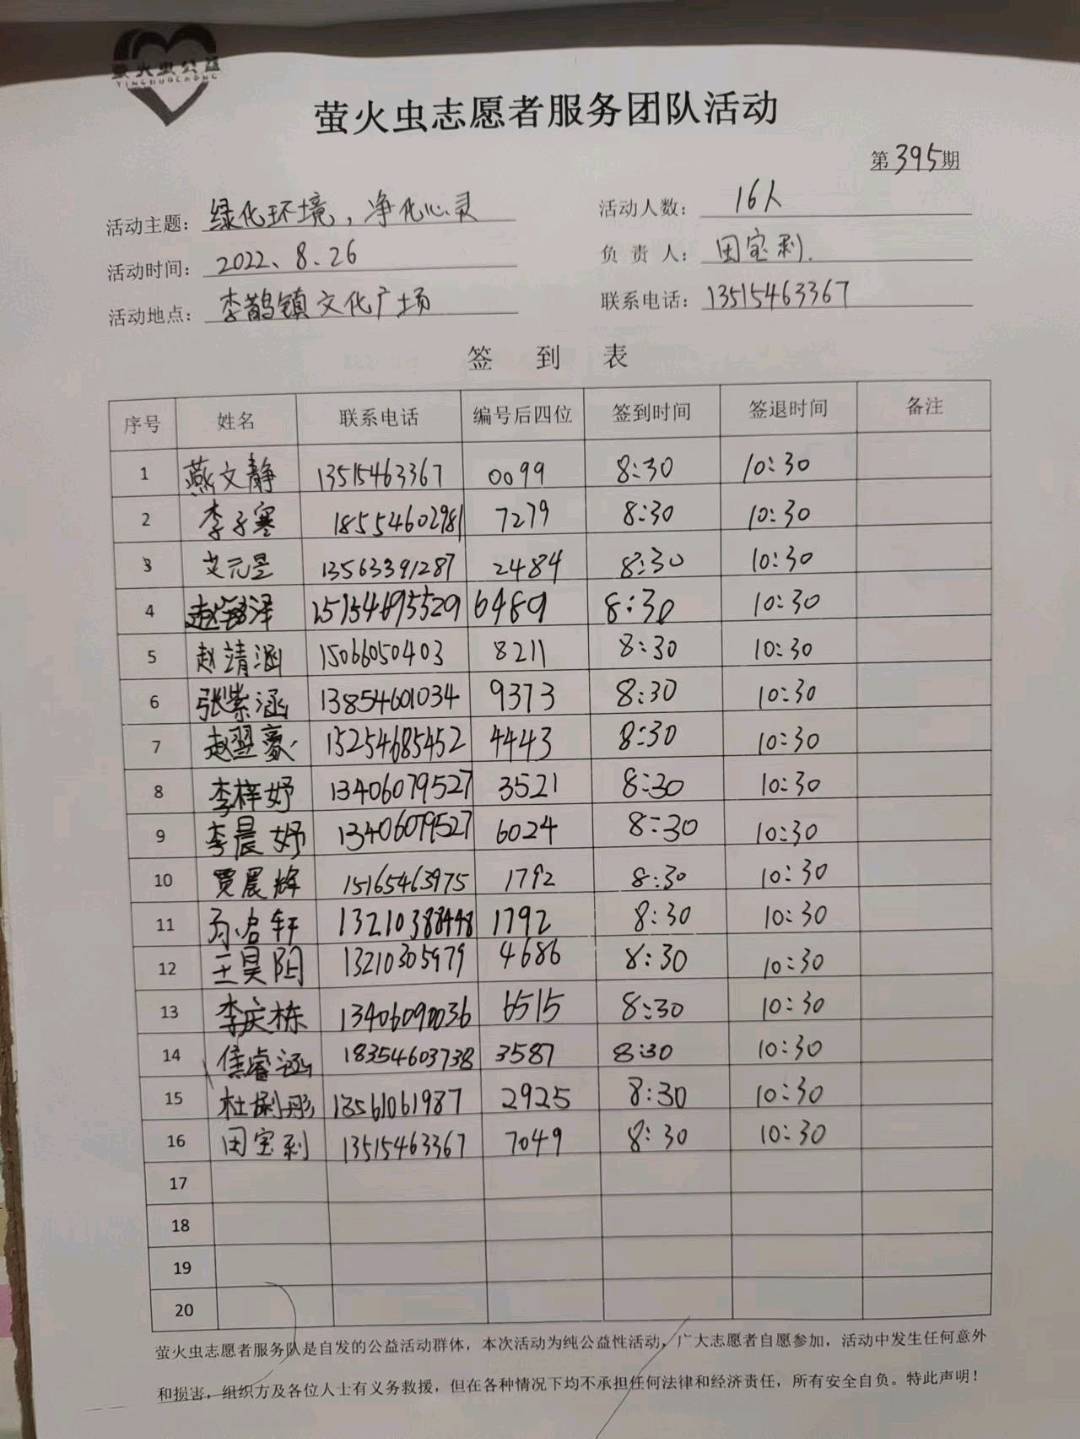 萤火虫公益
YINGHUOCHONG
萤火虫志愿者服务团队活动
第395期
活动主题：绿化环境，净化心灵 活动人数：16人
活动时间：2022、8、26 负责人：田宝利.
活动地点：李鹊镇文化广场 联系电话：13515463367
签到表
序号 姓名 联系电话 编号后四位 签到时间 签退时间 备注
1 燕文静 13515463367 0099 8:30 10:30
2 李子寒 18554602981 7279 8:30 10:30
3 艾元昱 13563391287 2484 8:30 10:30
4 6489 8:30 10:30
5 赵靖涵 15066050403 8211 8:30 10:30
6 张紫涵 13854601034 9373 8:30 10:30
7 赵翌豪 15254685452 4443 8:30 10:30
8 李梓妤 13406079527 3521 8:30 10:30
9 李晨妤 13406079527 6024 8:30 10:30
10 贾晨辉 15165463975 1792 8:30 10:30
11 1792 8:30 10:30
12 王昊阳 13210305979 4686 8:30 10:30
13 李庆栋 6515 8:30 10:30
14 焦睿涵 18354603738 3587 8:30 10:30
15 13561061987 2925 8:30 10:30
16 田宝利 13515463367 7049 8:30 10:30
17
18
19
20
萤火虫志愿者服务队是自发的公益活动群体，本次活动为纯公益性活动，广大志愿者自愿参加，活动中发生任何意外
和损害，组织方及各位人士有义务救援，但在各种情况下均不承担任何法律和经济责任，所有安全自负。特此声明！